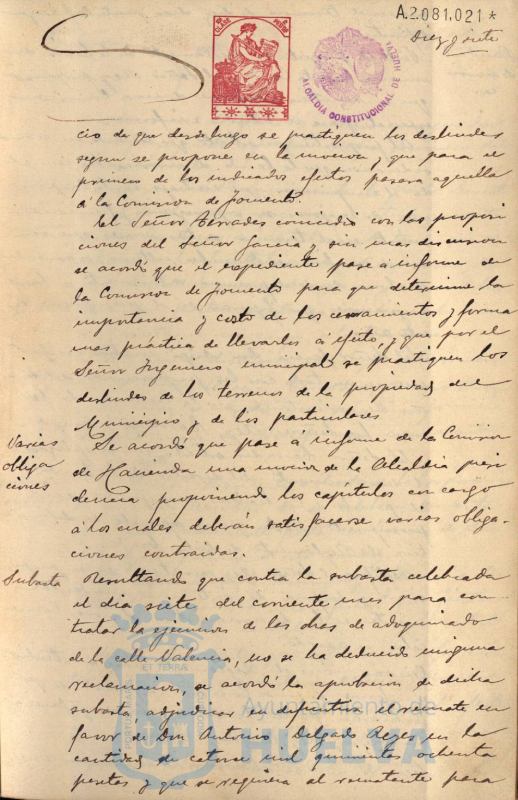 A.2.081.021 *
Diez y siete
CLASE
ALCALDIA CONSTITUCIONAL DE HUELVA
cio de que desde luego se practiquen los deslindes
segun se propone en la mocion, y que para el
primero de los indicados efectos pasara aquella
á la Comision de Fomento.
El Señor Terrades coincidió con las proposi
ciones del Señor Garcia y sin mas discusion
se acordó que el expediente pase á informe de
la Comision de Fomento para que determine la
importancia y costo de los cerramientos y forma
mas práctica de llevarlos á efecto, y que por el
Señor Ingeniero municipal se practiquen los
deslindes de los terrenos de la propiedad del
Municipio y de los particulares
Varias
obliga
ciones
Se acordó que pase á informe de la Comision
de Hacienda una mocion de la Alcaldia presi
dencia proponiendo los capítulos con cargo
á los cuales deberán satisfacerse varias obliga-
ciones contraidas.
Subasta
Resultando que contra la subasta celebrada
el dia siete del corriente mes para con
tratar la ejecucion de las obras de adoquinado
de la calle Valencia, no se ha deducido ninguna
reclamacion, se acordó la aprobacion de dicha
subasta, adjudicar en definitiva el remate en
favor de Don Antonio Delgado Reyes en la
cantidad de catorce mil quinientos ochenta
pesetas y que se requiera al rematante para
ET TERRA
Ayuntamiento de
HUELVA